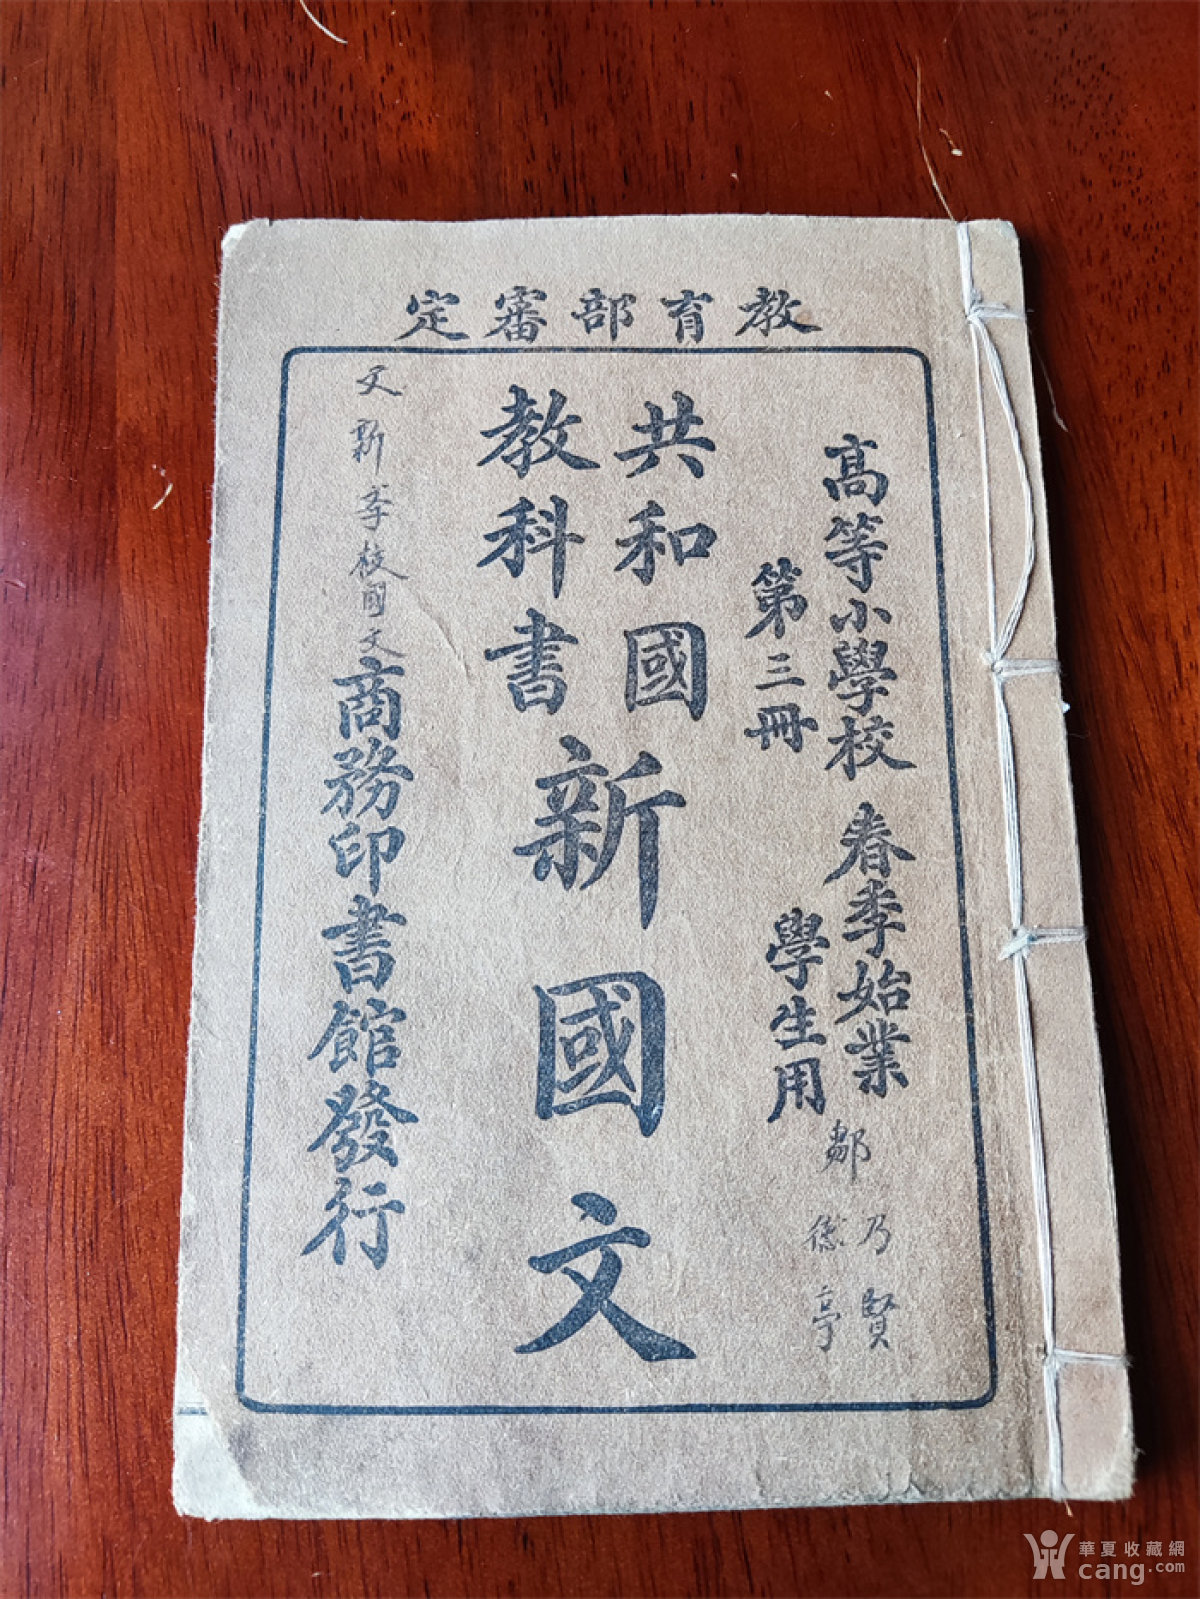 教育部審定
高等小學校 春季始業
第三冊 學生用
共和國
教科書
新國文
商務印書館發行
文新季校國文
鄒乃賢
亭
華夏收藏網
cang.com